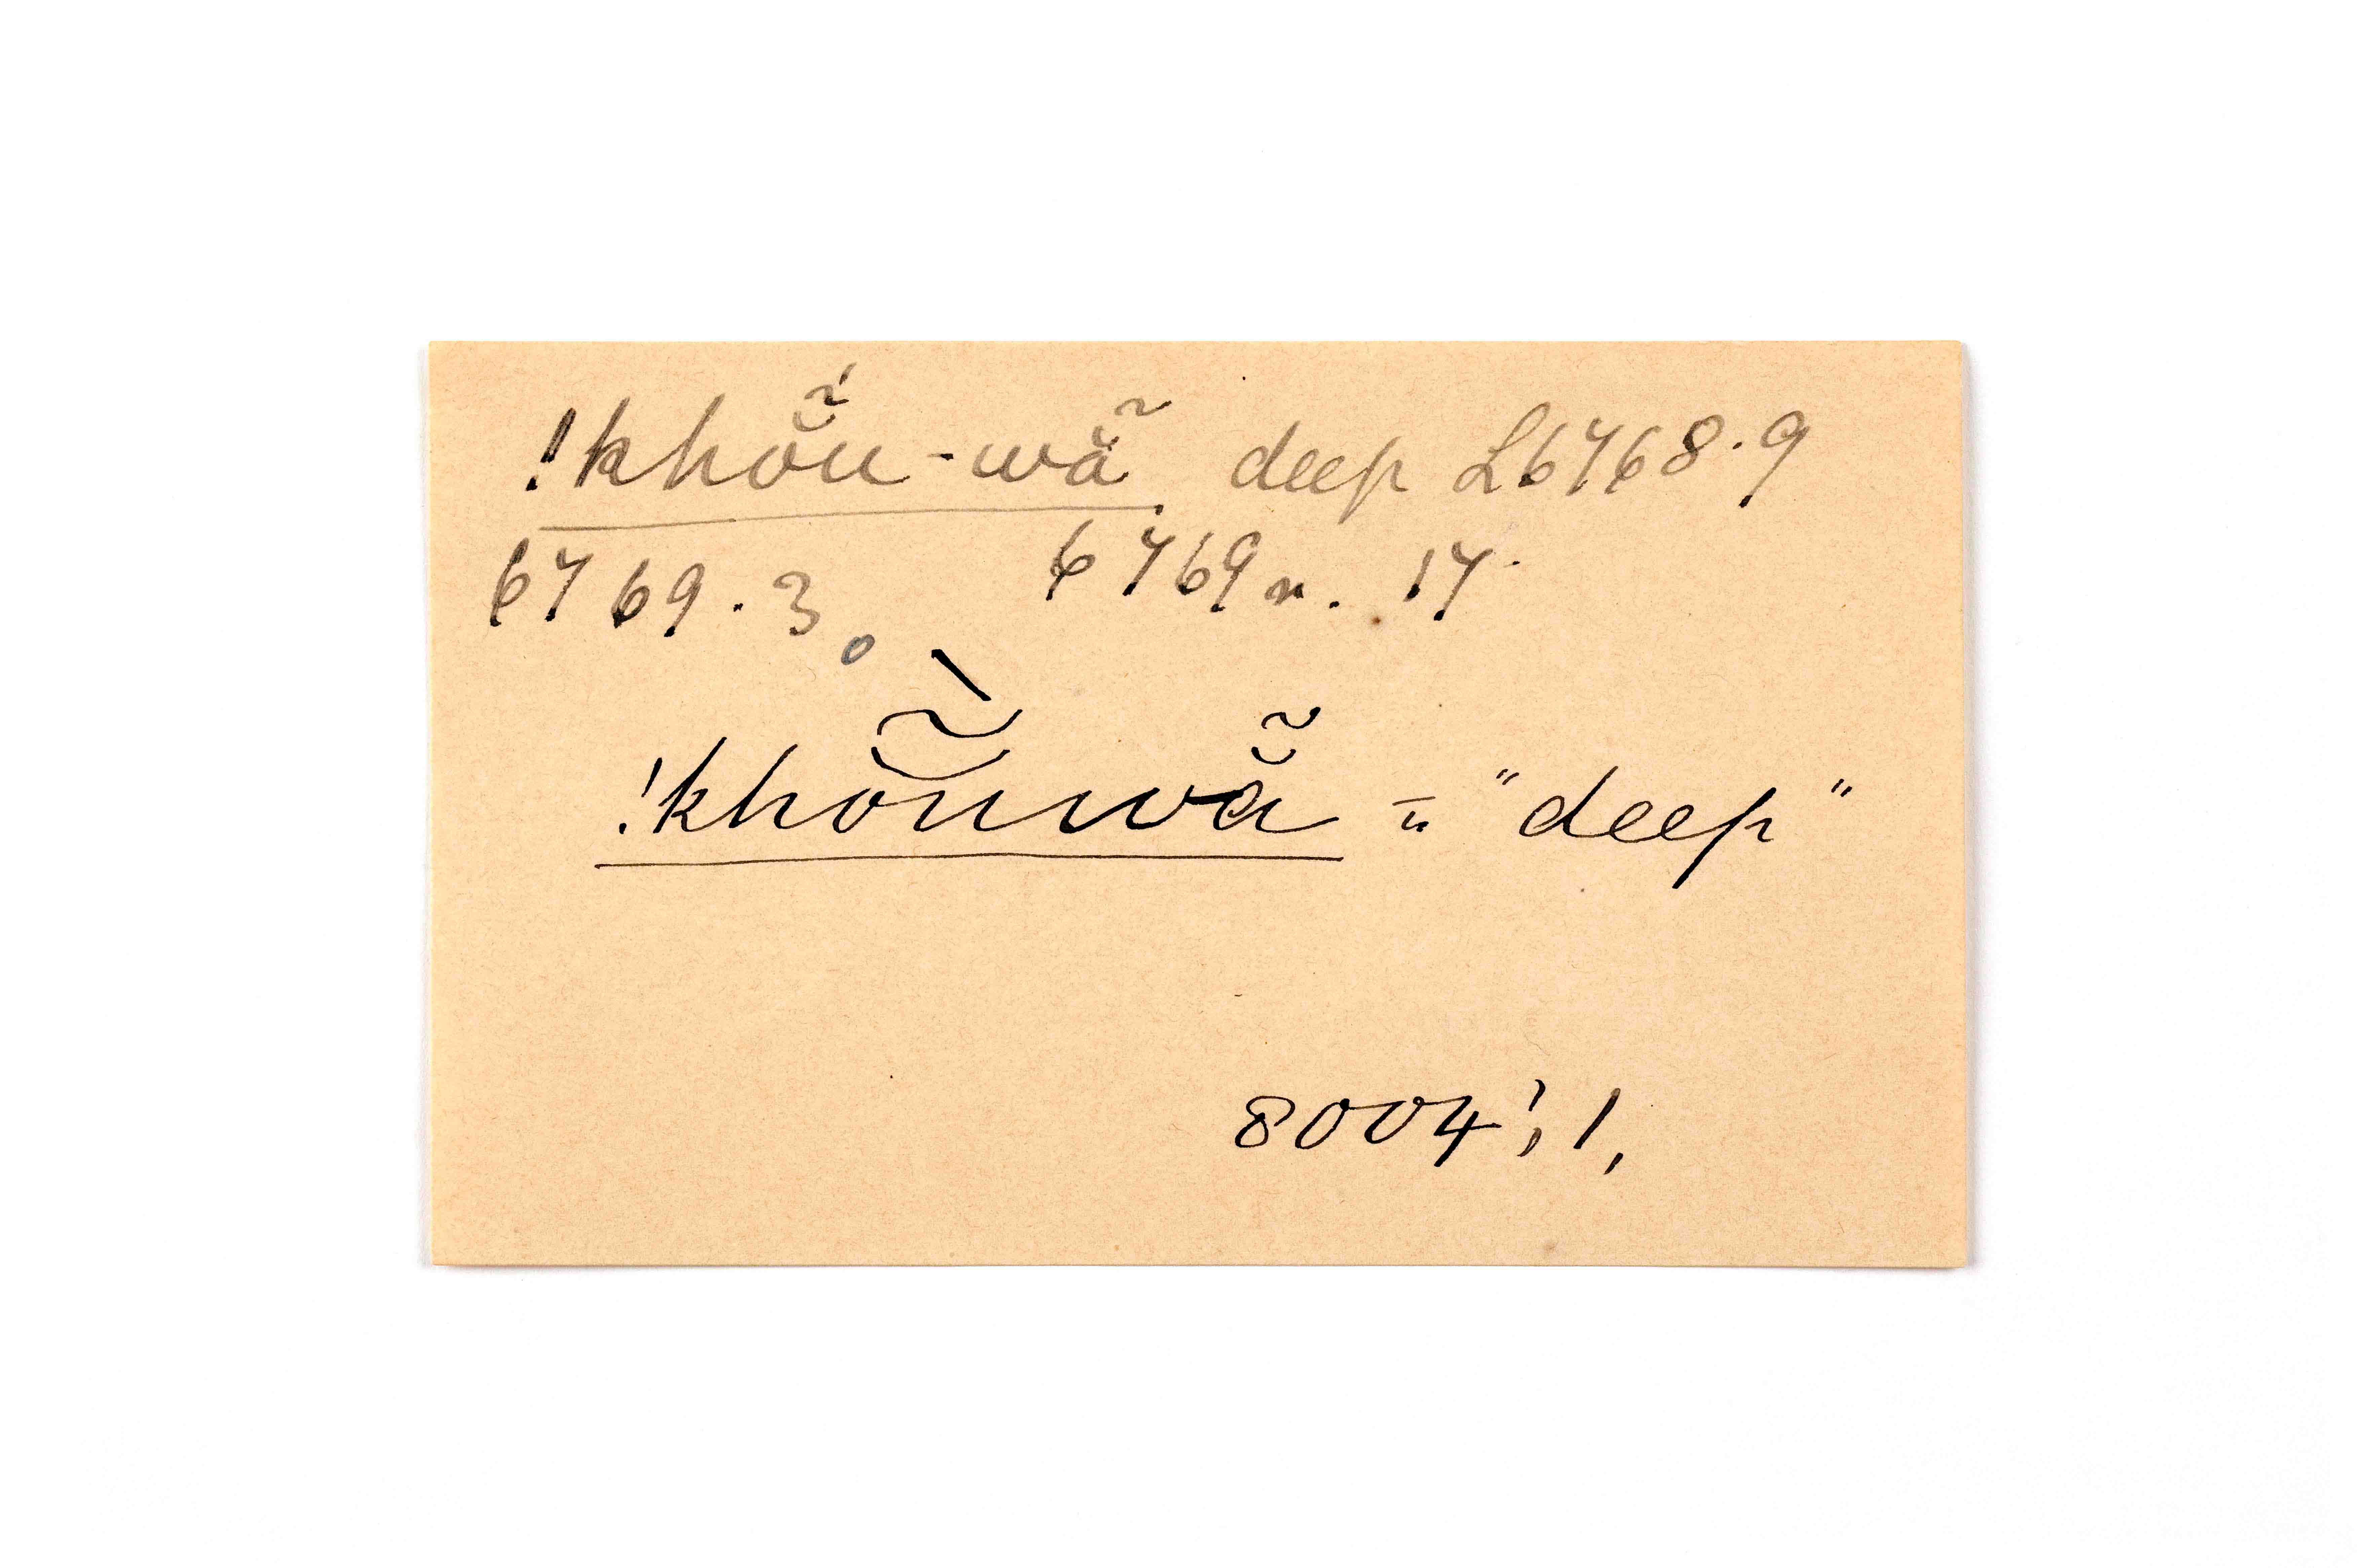 !khŏ̃́u-wẵ deep L6768.9
6769.3. 6769n. 17.
!khŏ̃̀uwẵ = "deep"
8004; 1,